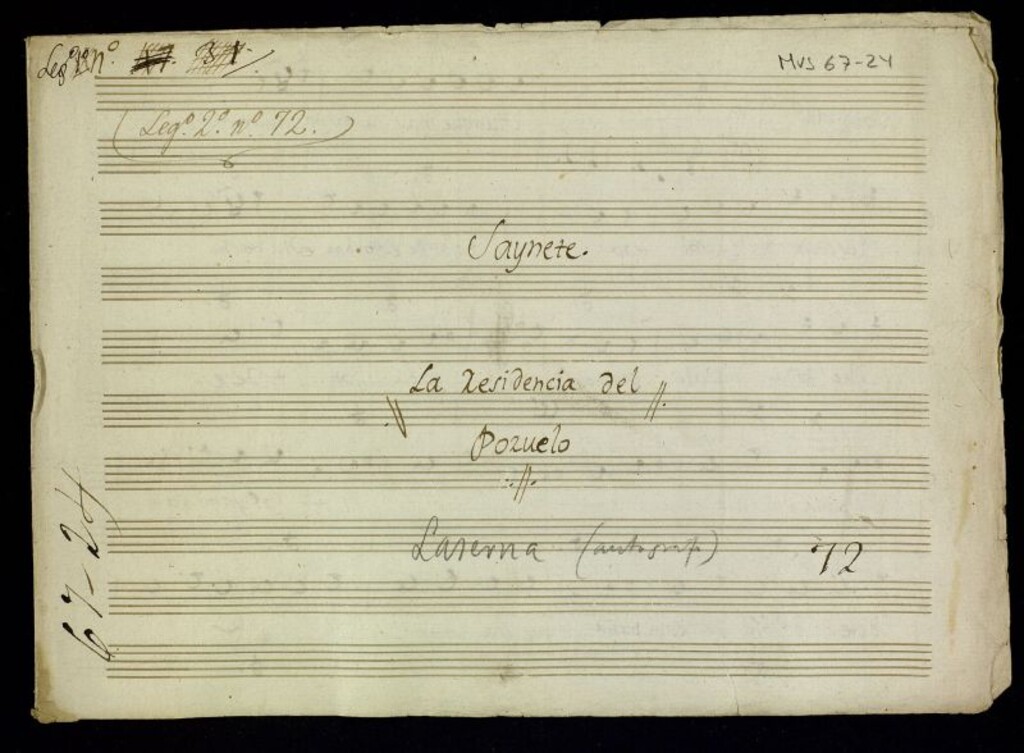 Leg.º 1.º nº.
MUS 67-24
(Leg.º 2.º nº. 72.)
Saynete.
La Residencia del
Pozuelo
Laserna (autografo)
72
67-24